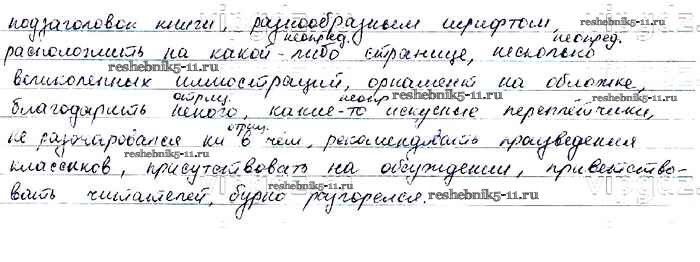 подзаголовок книги, разнообразным шрифтом,
неопред. неопред.
расположить на какой-либо странице, несколько
reshebnik5-11.ru
великолепных иллюстраций, орнамент на обложке,
reshebnik5-11.ru отриц. неопр reshebnik5-11.ru
благодарить некого, какие-то искусные переплётчики,
отриц.
не разочаровался ни в чём, рекомендовать произведения
reshebnik5-11.ru
классиков, присутствовать на обсуждении, приветство-
reshebnik5-11.ru
вать читателей, бурно разгорелся.
reshebnik5-11.ru